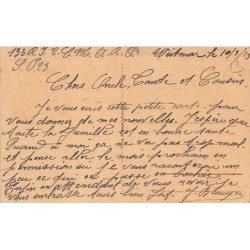 Chers Oncle, Tante et Cousins
Je vous écris cette petite carte pour
vous donner de mes nouvelles. J'espère que
toute la famille est en bonne santé
Quand à moi ça ne va pas trop mal
et pense aller le mois prochain en
permission ou je vous raconterai un
peu ce qui se passe en bochie
Enfin en attendant de vous revoir je
vous embrasse tous bien fort.